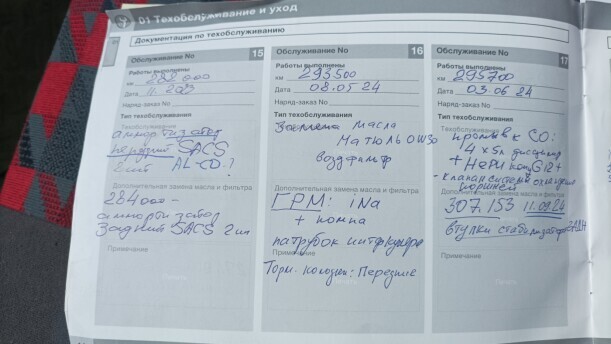 01 Техобслуживание и уход
Документация по техобслуживанию
Обслуживание No 15
Работы выполнены
км 282 000
Дата 11.2023
Наряд-заказ No
Тип техобслуживания
Техобслуживание
амортизатор
передний SACS
2 шт AL-CD.?
Дополнительная замена масла и фильтра
284 000 -
амортизатор
Задний SACS 2 шт
Примечание
Обслуживание No 16
Работы выполнены
км 293 500
Дата 08.05 24
Наряд-заказ No
Тип техобслуживания
Замена масла
Мотюль 0W30
возд фильтр
Дополнительная замена масла и фильтра
ГРМ: iNa
+ помпа
патрубок интеркулера
Примечание
Торм. колодки: Передние
Обслуживание No 17
Работы выполнены
км 295 700
Дата 03.06 24
Наряд-заказ No
Тип техобслуживания
Техобслуживание
промывк СО:
4 x 5л дисцилир
+ G12+
- клапан системы охлажден
поршней
Дополнительная замена масла и фильтра
307.153 11.09.24
втулки стабилизатора
Примечание